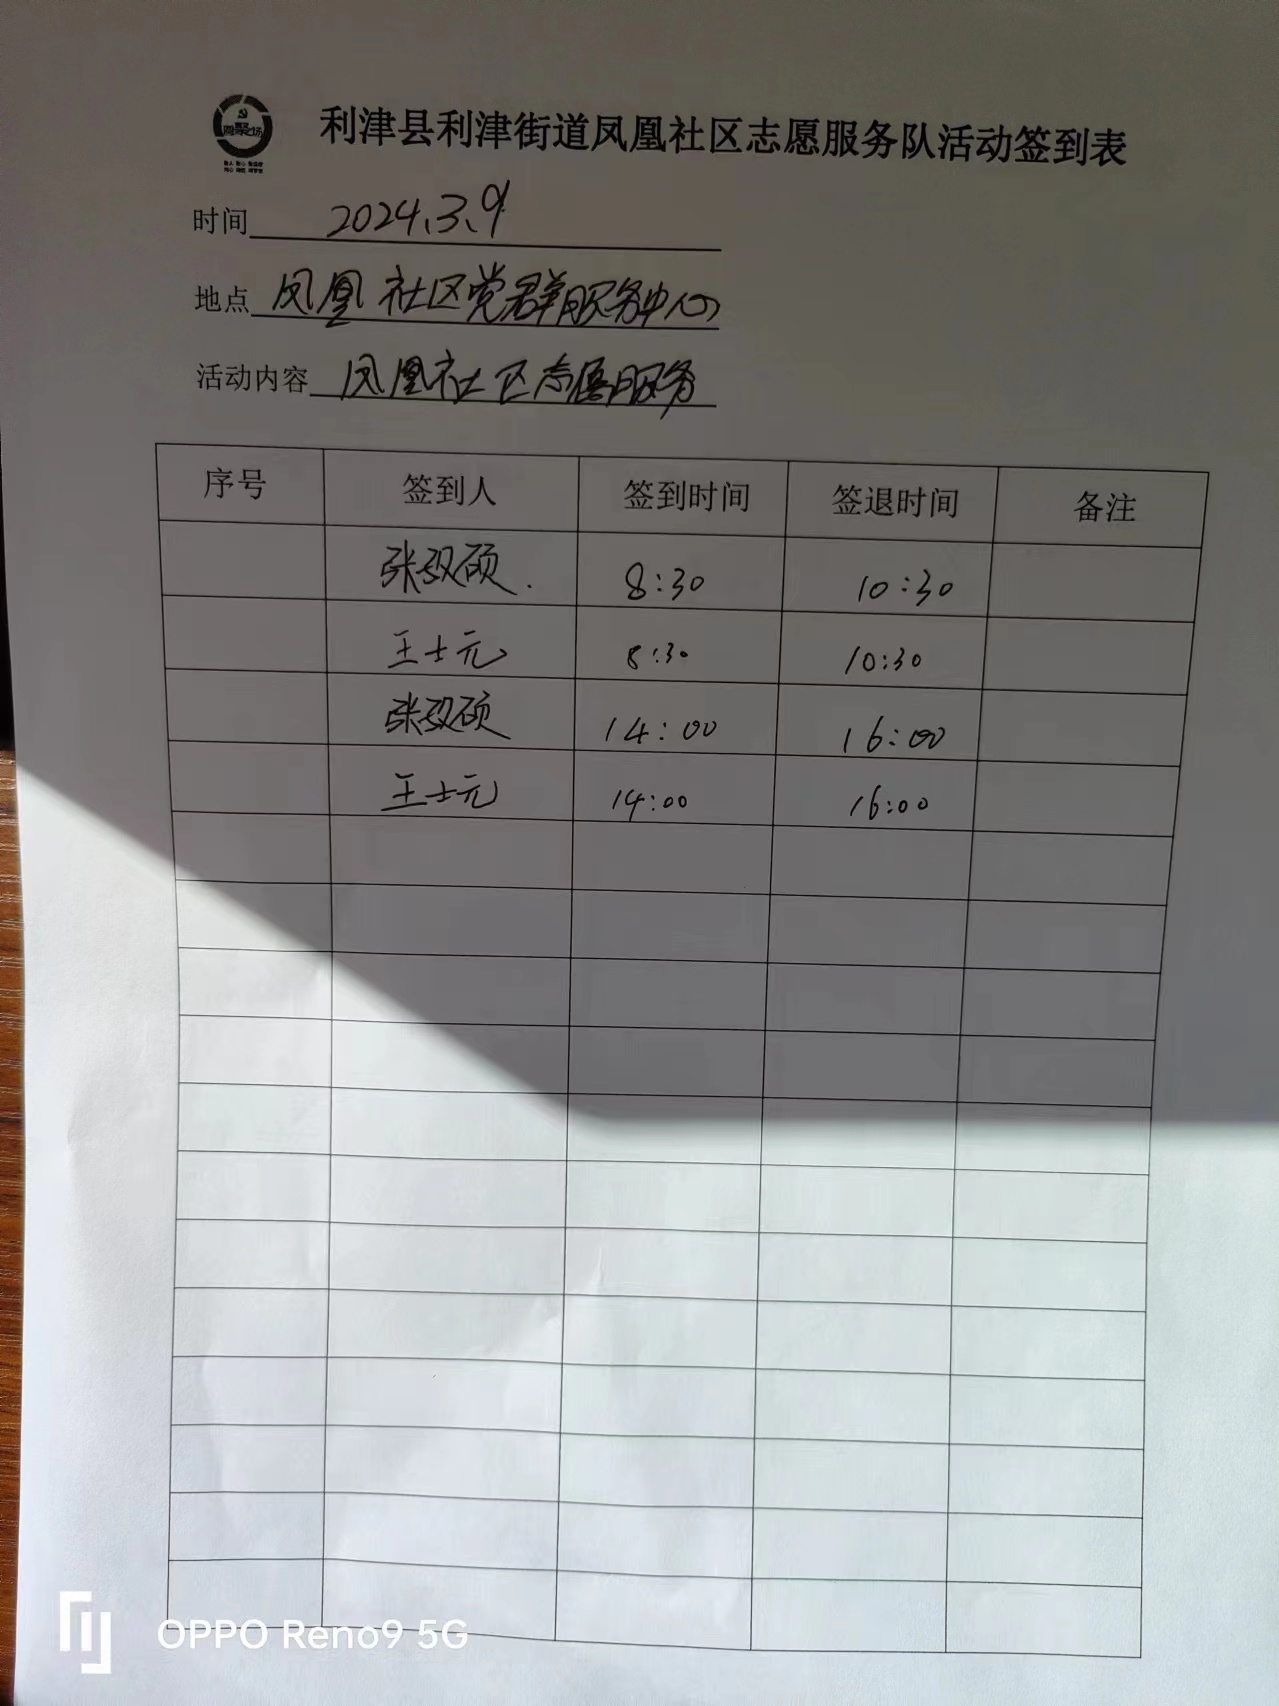 利津县利津街道凤凰社区志愿服务队活动签到表
时间 2024.3.9
地点 凤凰社区党群服务中心
活动内容 凤凰社区志愿服务
序号 签到人 签到时间 签退时间 备注
张玟硕 8:30 10:30
王士元 8:30 10:30
张玟硕 14:00 16:00
王士元 14:00 16:00
OPPO Reno9 5G